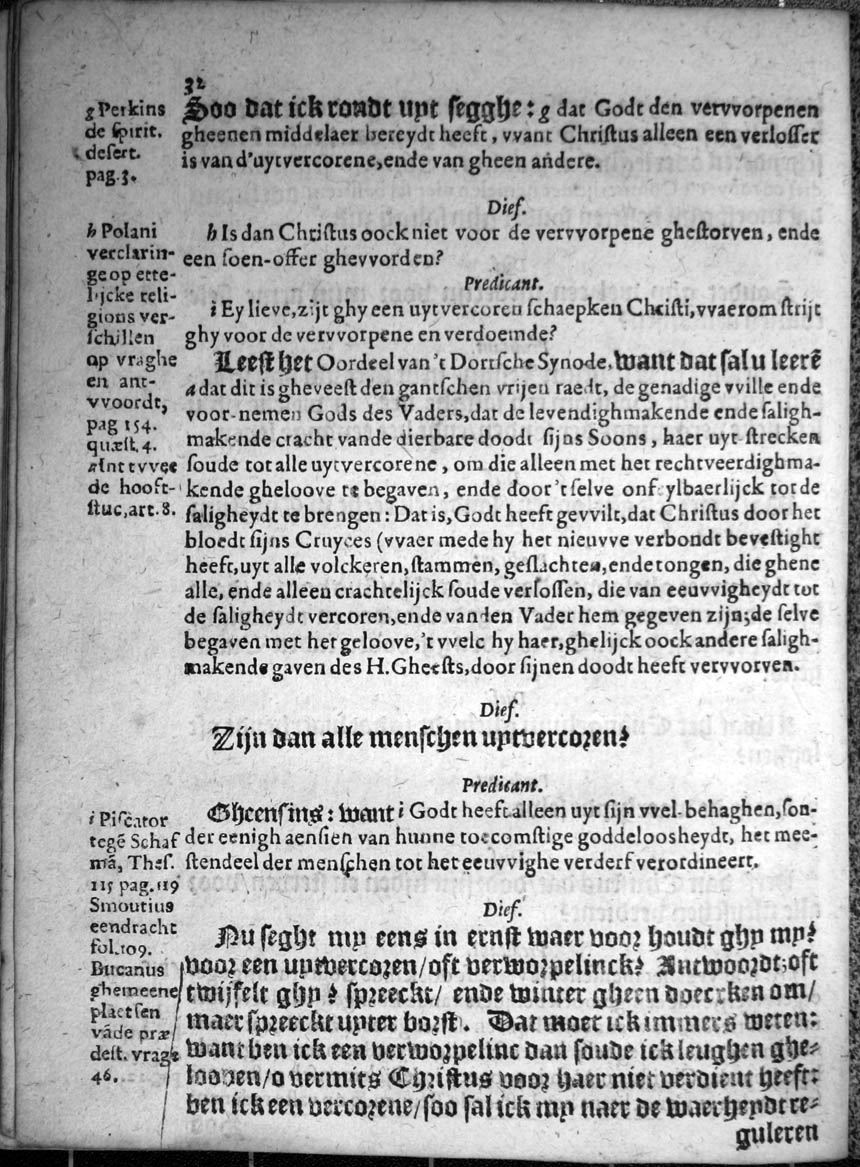 32
g Perkins
de spirit.
desert.
pag. 3.
Soo dat ick rondt uyt segghe: g dat Godt den vervvorpenen
gheenen middelaer bereydt heeft, vvant Christus alleen een verlosser
is van d'uytvercorene, ende van gheen andere.
Dief.
h Polani
verclarin-
ge op ette-
lijcke reli-
gions ver-
schillen
op vraghe
en ant-
vvoordt,
pag 154.
quæst. 4.
a Int tvvee
de hooft-
stuc, art. 8.
h Is dan Christus oock niet voor de vervvorpene ghestorven, ende
een soen-offer ghevvorden?
Predicant.
i Ey lieve, zijt ghy een uytvercoren schaepken Christi, vvaerom strijt
ghy voor de vervvorpene en verdoemde?
Leest het Oordeel van 't Dortsche Synode, want dat sal u leerē
a dat dit is gheveest den gantschen vrijen raedt, de genadige vville ende
voor-nemen Gods des Vaders, dat de levendighmakende ende saligh-
makende cracht vande dierbare doodt sijns Soons, haer uyt strecken
soude tot alle uytvercorene, om die alleen met het rechtveerdighma-
kende gheloove te begaven, ende door 't selve onfeylbaerlijck tot de
saligheydt te brengen: Dat is, Godt heeft gevvilt, dat Christus door het
bloedt sijns Cruyces (vvaer mede hy het nieuvve verbondt bevestight
heeft, uyt alle volckeren, stammen, geslachten, ende tongen, die ghene
alle, ende alleen crachtelijck soude verlossen, die van eeuvvigheydt tot
de saligheydt vercoren, ende van den Vader hem gegeven zijn; de selve
begaven met het geloove, 't vvelc hy haer, ghelijck oock andere saligh-
makende gaven des H. Gheests, door sijnen doodt heeft vervvorven.
Dief.
Zijn dan alle menschen uytvercoren?
Predicant.
i Piscator
tegē Schaf
mā, Thes.
115 pag. 119
Smoutius
eendracht
fol. 109.
Bucanus
ghemeene
plaetsen
vāde præ
dest. vrage
46.
Gheensins: want i Godt heeft alleen uyt sijn vvel-behaghen, son-
der eenigh aensien van hunne toecomstige goddeloosheydt, het mee-
stendeel der menschen tot het eeuvvighe verderf verordineert.
Dief.
Nu seght my eens in ernst waer voor houdt ghy my?
voor een uytvercoren/ oft verworpelinck? Antwoordt; oft
twijfelt ghy? spreeckt/ ende winter gheen doecxken om/
maer spreeckt uyter borst. Dat moet ick immers weten:
want ben ick een verworpelinc dan soude ick leughen ghe-
looven/ o vermits Christus voor haer niet verdient heeft:
ben ick een vercorene/ soo sal ick my naer de waerheydt re-
guleren